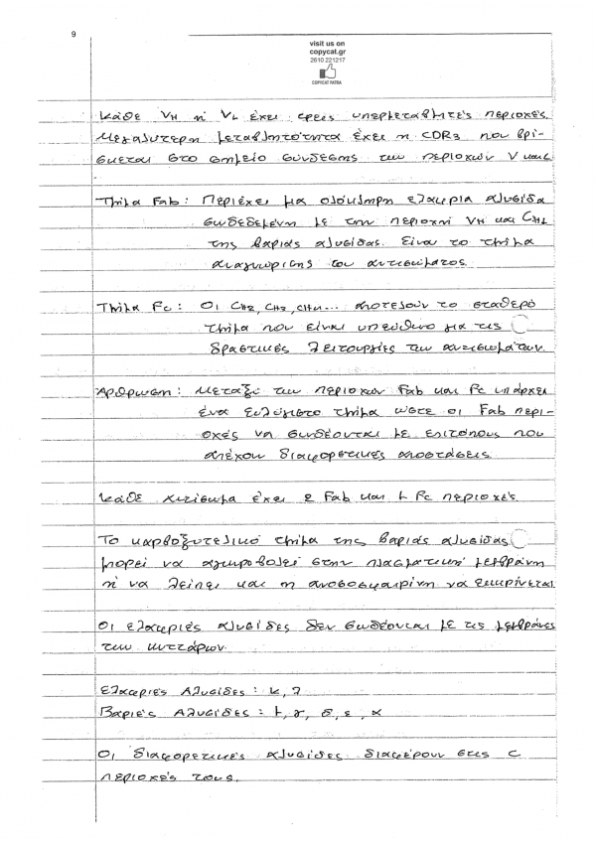 9
visit us on
copycat.gr
2610 221217
COPYCAT PATRA
Κάθε VH ή VL έχει τρεις υπερμεταβλητές περιοχές
Μεγαλύτερη μεταβλητότητα έχει η CDR3 που βρί-
σκεται στο σημείο σύνδεσης των περιοχών V και C
Τμήμα Fab: Περιέχει μια ολόκληρη ελαφριά αλυσίδα
συνδεδεμένη με την περιοχή VH και CH1
της βαριάς αλυσίδας. Είναι το τμήμα
αναγνώρισης του αντισώματος
Τμήμα Fc: Οι CH2, CH3, CH4... αποτελούν το σταθερό
τμήμα που είναι υπεύθυνο για τις
δραστικές λειτουργίες των αντισωμάτων
Άρθρωση: Μεταξύ των περιοχών Fab και Fc υπάρχει
ένα ευλύγιστο τμήμα ώστε οι Fab περι-
οχές να συνδέονται με επιτόπους που
απέχουν διαφορετικές αποστάσεις
Κάθε αντίσωμα έχει 2 Fab και 1 Fc περιοχές
Το καρβοξυτελικό τμήμα της βαριάς αλυσίδας
μπορεί να αγκυροβολεί στην πλασματική μεμβράνη
ή να λείπει και η ανοσοσφαιρίνη να εκκρίνεται
Οι ελαφριές αλυσίδες δεν συνδέονται με τις μεμβράνες
των κυττάρων
Ελαφριές Αλυσίδες: κ, λ
Βαριές Αλυσίδες: μ, γ, δ, ε, α
Οι διαφορετικές αλυσίδες διαφέρουν στις C
περιοχές τους.